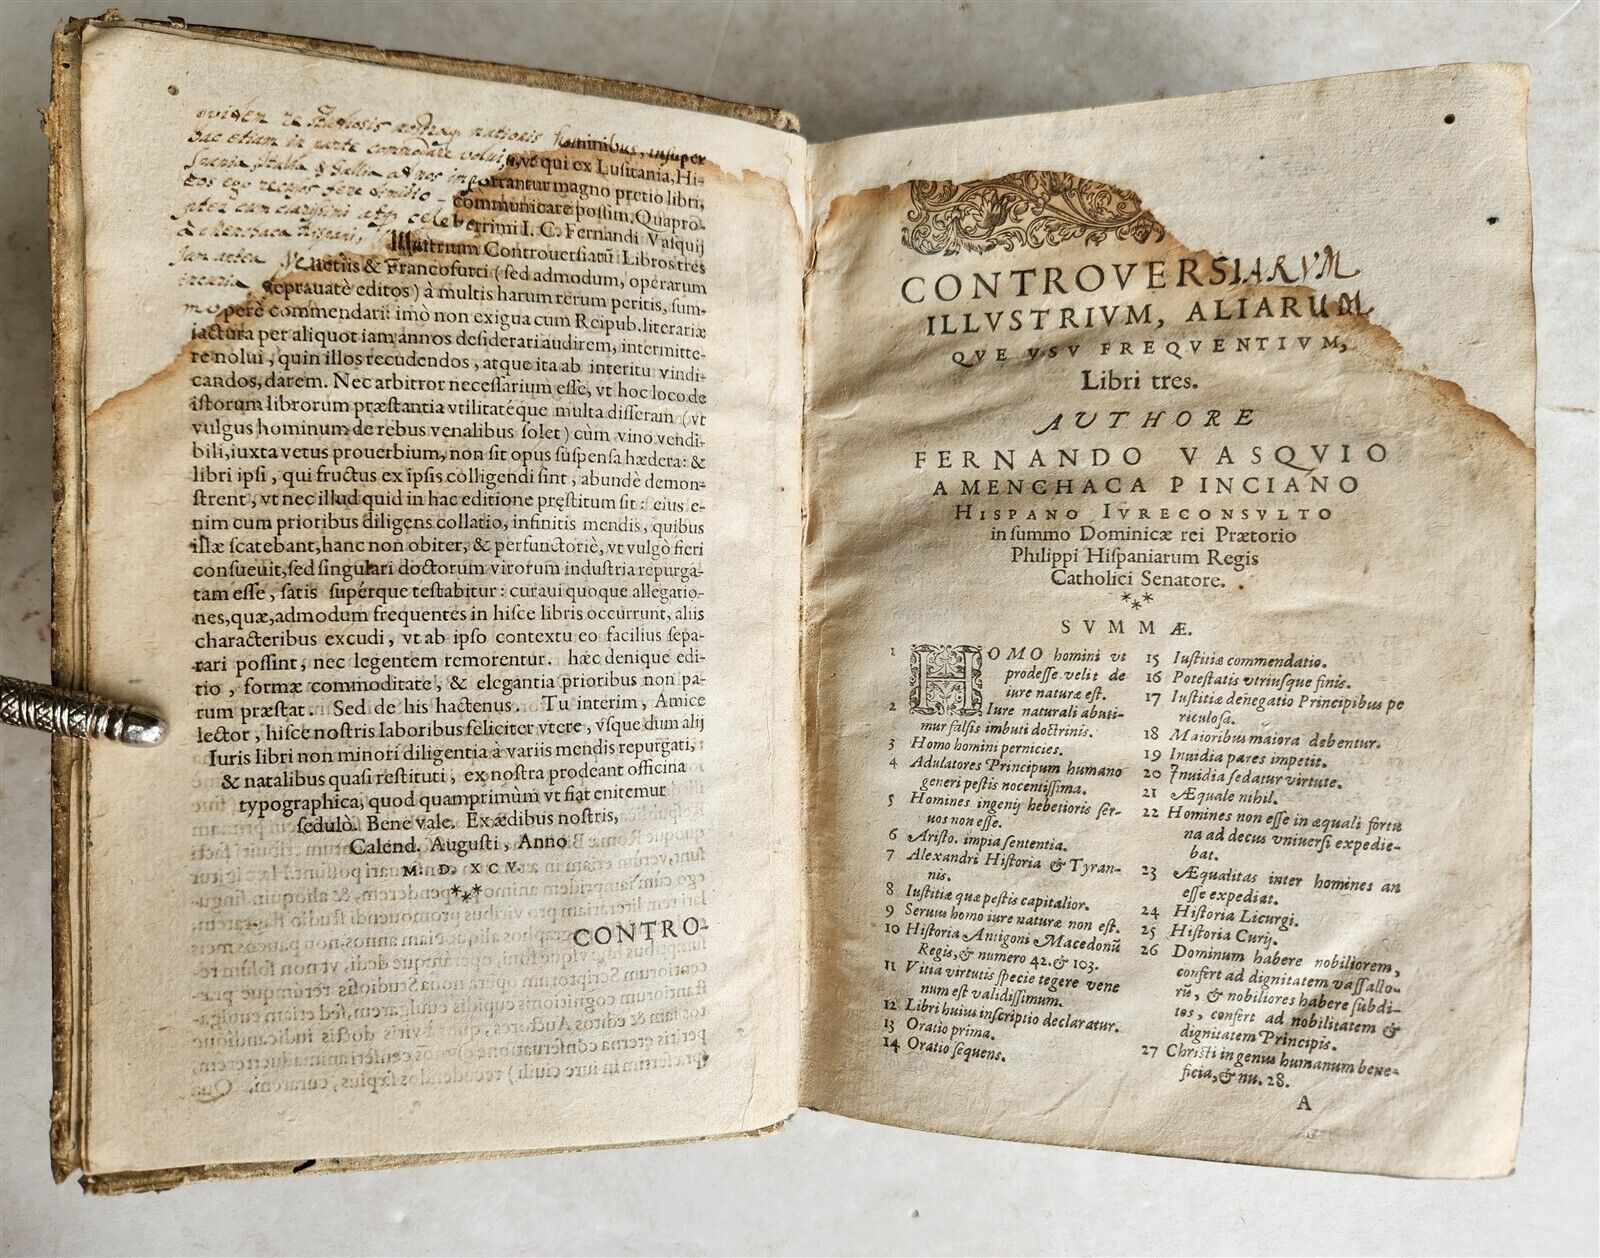 hominibus, insuper
hac etiam in parte commodare volui, vt qui ex Lusitania, Hi-
spania, Italia & Gallia ad nos importantur magno pretio libri,
eos ego communicare possim, Quapro-
pter cum clarissimi celeberrimi I. C. Fernandi Vasquij
à Menchaca Hispani, Illustrium Controuersiarū Libros tres
jam antea Venetiis & Francofurti (sed admodum, operarum
deprauatè editos) à multis harum rerum peritis, sum-
mopere commendari: imò non exigua cum Reipub. literariæ
iactura per aliquot iam annos desiderari audirem, intermitte-
re nolui, quin illos recudendos, atque ita ab interitu vindi-
candos, darem. Nec arbitror necessarium esse, vt hoc loco de
istorum librorum præstantia vtilitatéque multa disseram (vt
vulgus hominum de rebus venalibus solet) cùm vino vendi-
bili, iuxta vetus prouerbium, non sit opus suspensa hædera: &
libri ipsi, qui fructus ex ipsis colligendi sint, abundè demon-
strent, vt nec illud quid in hac editione præstitum sit: eius e-
nim cum prioribus diligens collatio, infinitis mendis, quibus
illæ scatebant, hanc non obiter, & perfunctoriè, vt vulgò fieri
consueuit, sed singulari doctorum virorum industria repurga-
tam esse, satis supérque testabitur: curaui quoque allegatio-
nes, quæ, admodum frequentes in hisce libris occurrunt, aliis
characteribus excudi, vt ab ipso contextu eo facilius sepa-
rari possint, nec legentem remorentur. hæc denique edi-
tio, formæ commoditate, & elegantia prioribus non pa-
rum præstat. Sed de his hactenus. Tu interim, Amice
lector, hisce nostris laboribus feliciter vtere, vsque dum alij
Iuris libri non minori diligentia à variis mendis repurgati,
& natalibus quasi restituti, ex nostra prodeant officina
typographica, quod quamprimùm vt fiat enitemur
sedulò. Bene vale. Ex ædibus nostris,
Calend. Augusti, Anno
M. D. XCV.
***
CONTRO-
CONTROVERSIARVM
ILLVSTRIVM, ALIARUM
QVE VSV FREQVENTIVM,
Libri tres.
AVTHORE
FERNANDO VASQVIO
A MENCHACA PINCIANO
HISPANO IVRECONSVLTO
in summo Dominicæ rei Prætorio
Philippi Hispaniarum Regis
Catholici Senatore.
***
SVMMÆ.
1 HOMO homini vt
prodesse velit de
iure naturæ est.
2 Iure naturali abuti-
mur falsis imbuti doctrinis.
3 Homo homini pernicies.
4 Adulatores Principum humano
generi pestis nocentissima.
5 Homines ingenij hebetioris ser-
uos non esse.
6 Aristo. impia sententia.
7 Alexandri Historia & Tyran-
nis.
8 Iustitiæ quæ pestis capitalior.
9 Seruus homo iure naturæ non est.
10 Historia Antigoni Macedonū
Regis, & numero 42. & 103.
11 Vitia virtutis specie tegere vene
num est validissimum.
12 Libri huius inscriptio declaratur.
13 Oratio prima.
14 Oratio sequens.
15 Iustitiæ commendatio.
16 Potestatis vtriusque finis.
17 Iustitiæ denegatio Principibus pe
riculosa.
18 Maioribus maiora debentur.
19 Inuidia pares impetit.
20 Inuidia sedatur virtute.
21 Æquale nihil.
22 Homines non esse in æquali fortu
na ad decus vniuersi expedie-
bat.
23 Æqualitas inter homines an
esse expediat.
24 Historia Licurgi.
25 Historia Curij.
26 Dominum habere nobiliorem,
confert ad dignitatem vassallo-
rū, & nobiliores habere subdi-
tos, confert ad nobilitatem &
dignitatem Principis.
27 Christi in genus humanum bene-
ficia, & nu. 28.
A